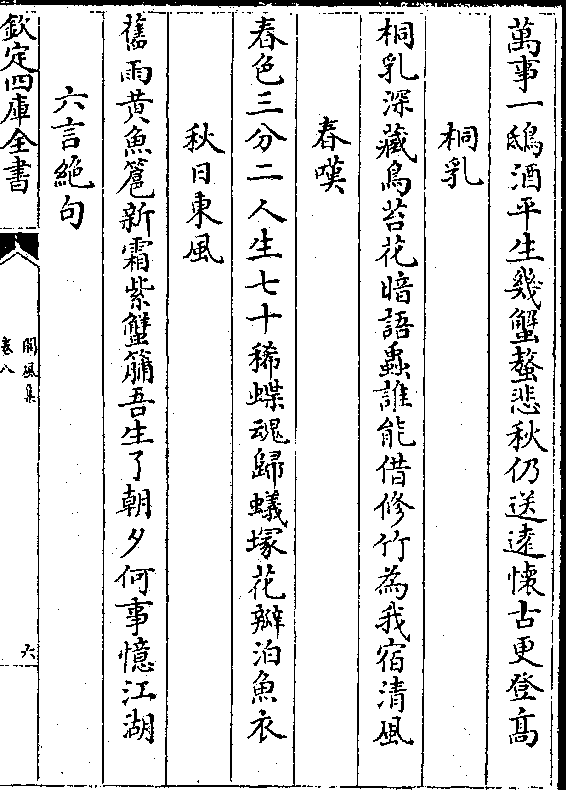 萬事一鴟酒平生幾蟹螯悲秋仍送逺懷古更登髙
桐乳
桐乳深藏鳥苔花暗語蟲誰能借修竹為我宿清風
春嘆
春色三分二人生七十稀蝶魂歸蟻塚花瓣泊魚衣
秋日東風
舊雨黄魚篦新霜紫蟹籪吾生了朝夕何事憶江湖
六言絶句
欽定四庫全書
閬風集
卷八
六